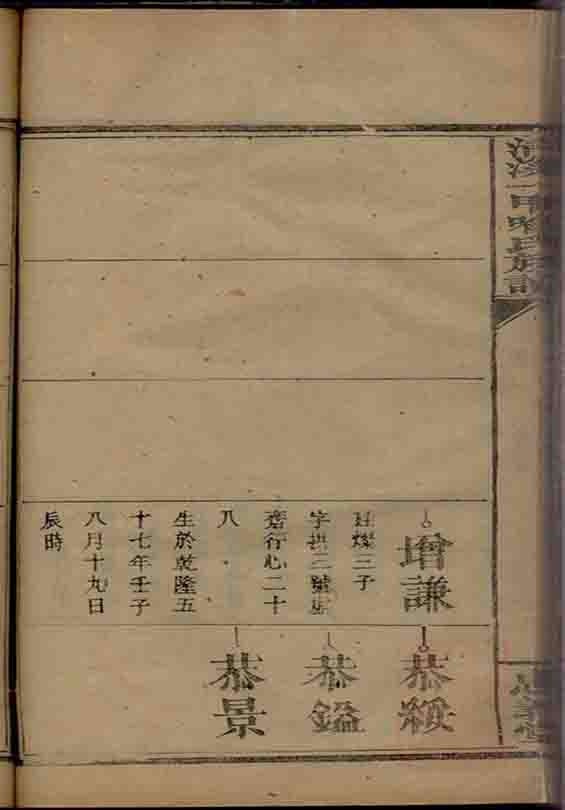 一甲氏族
增謙
燦三子
字拱三號
齋行心二十
八
生於乾隆五
十七年壬子
八月十九日
辰時
恭綬
恭鎰
恭景